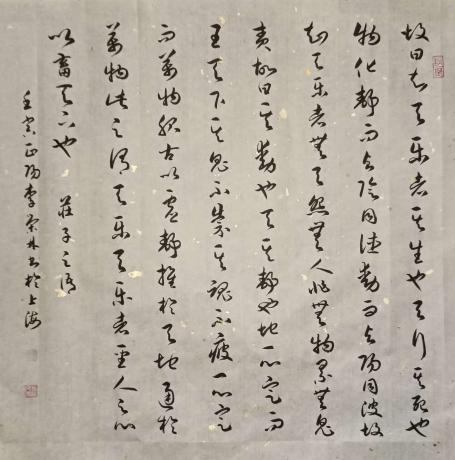 故曰知天樂者其生也天行其死也
物化靜而與陰同德動而與陽同波故
知天樂者無天怨無人非無物累無鬼
責故曰其動也天其靜也地一心定而
王天下其鬼不祟其魂不疲一心定
而萬物服言以虛靜推於天地通於
萬物此之謂天樂天樂者聖人之心
以畜天下也 莊子之語
壬寅正陽李榮林書於上海